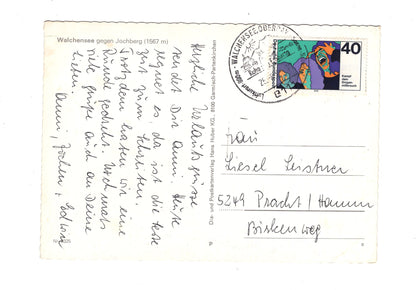 Walchensee gegen Jochberg (1567 m)
Herzliche Urlaubsgrüsse
sendet Dir Anni. Heute
regnet es, da ist die beste
Zeit zum Schreiben.
Trotzdem haben wir eine
Runde gedreht. Nochmals
viele Grüße auch an Deine
Lieben.
Anni, Jochen, Edwin
Druck und Postkartenverlag Hans Huber KG., 8100 Garmisch-Partenkirchen
WALCHENSEE
40
Frau
Liesel
5249 Pracht / Hamm
Birkenweg